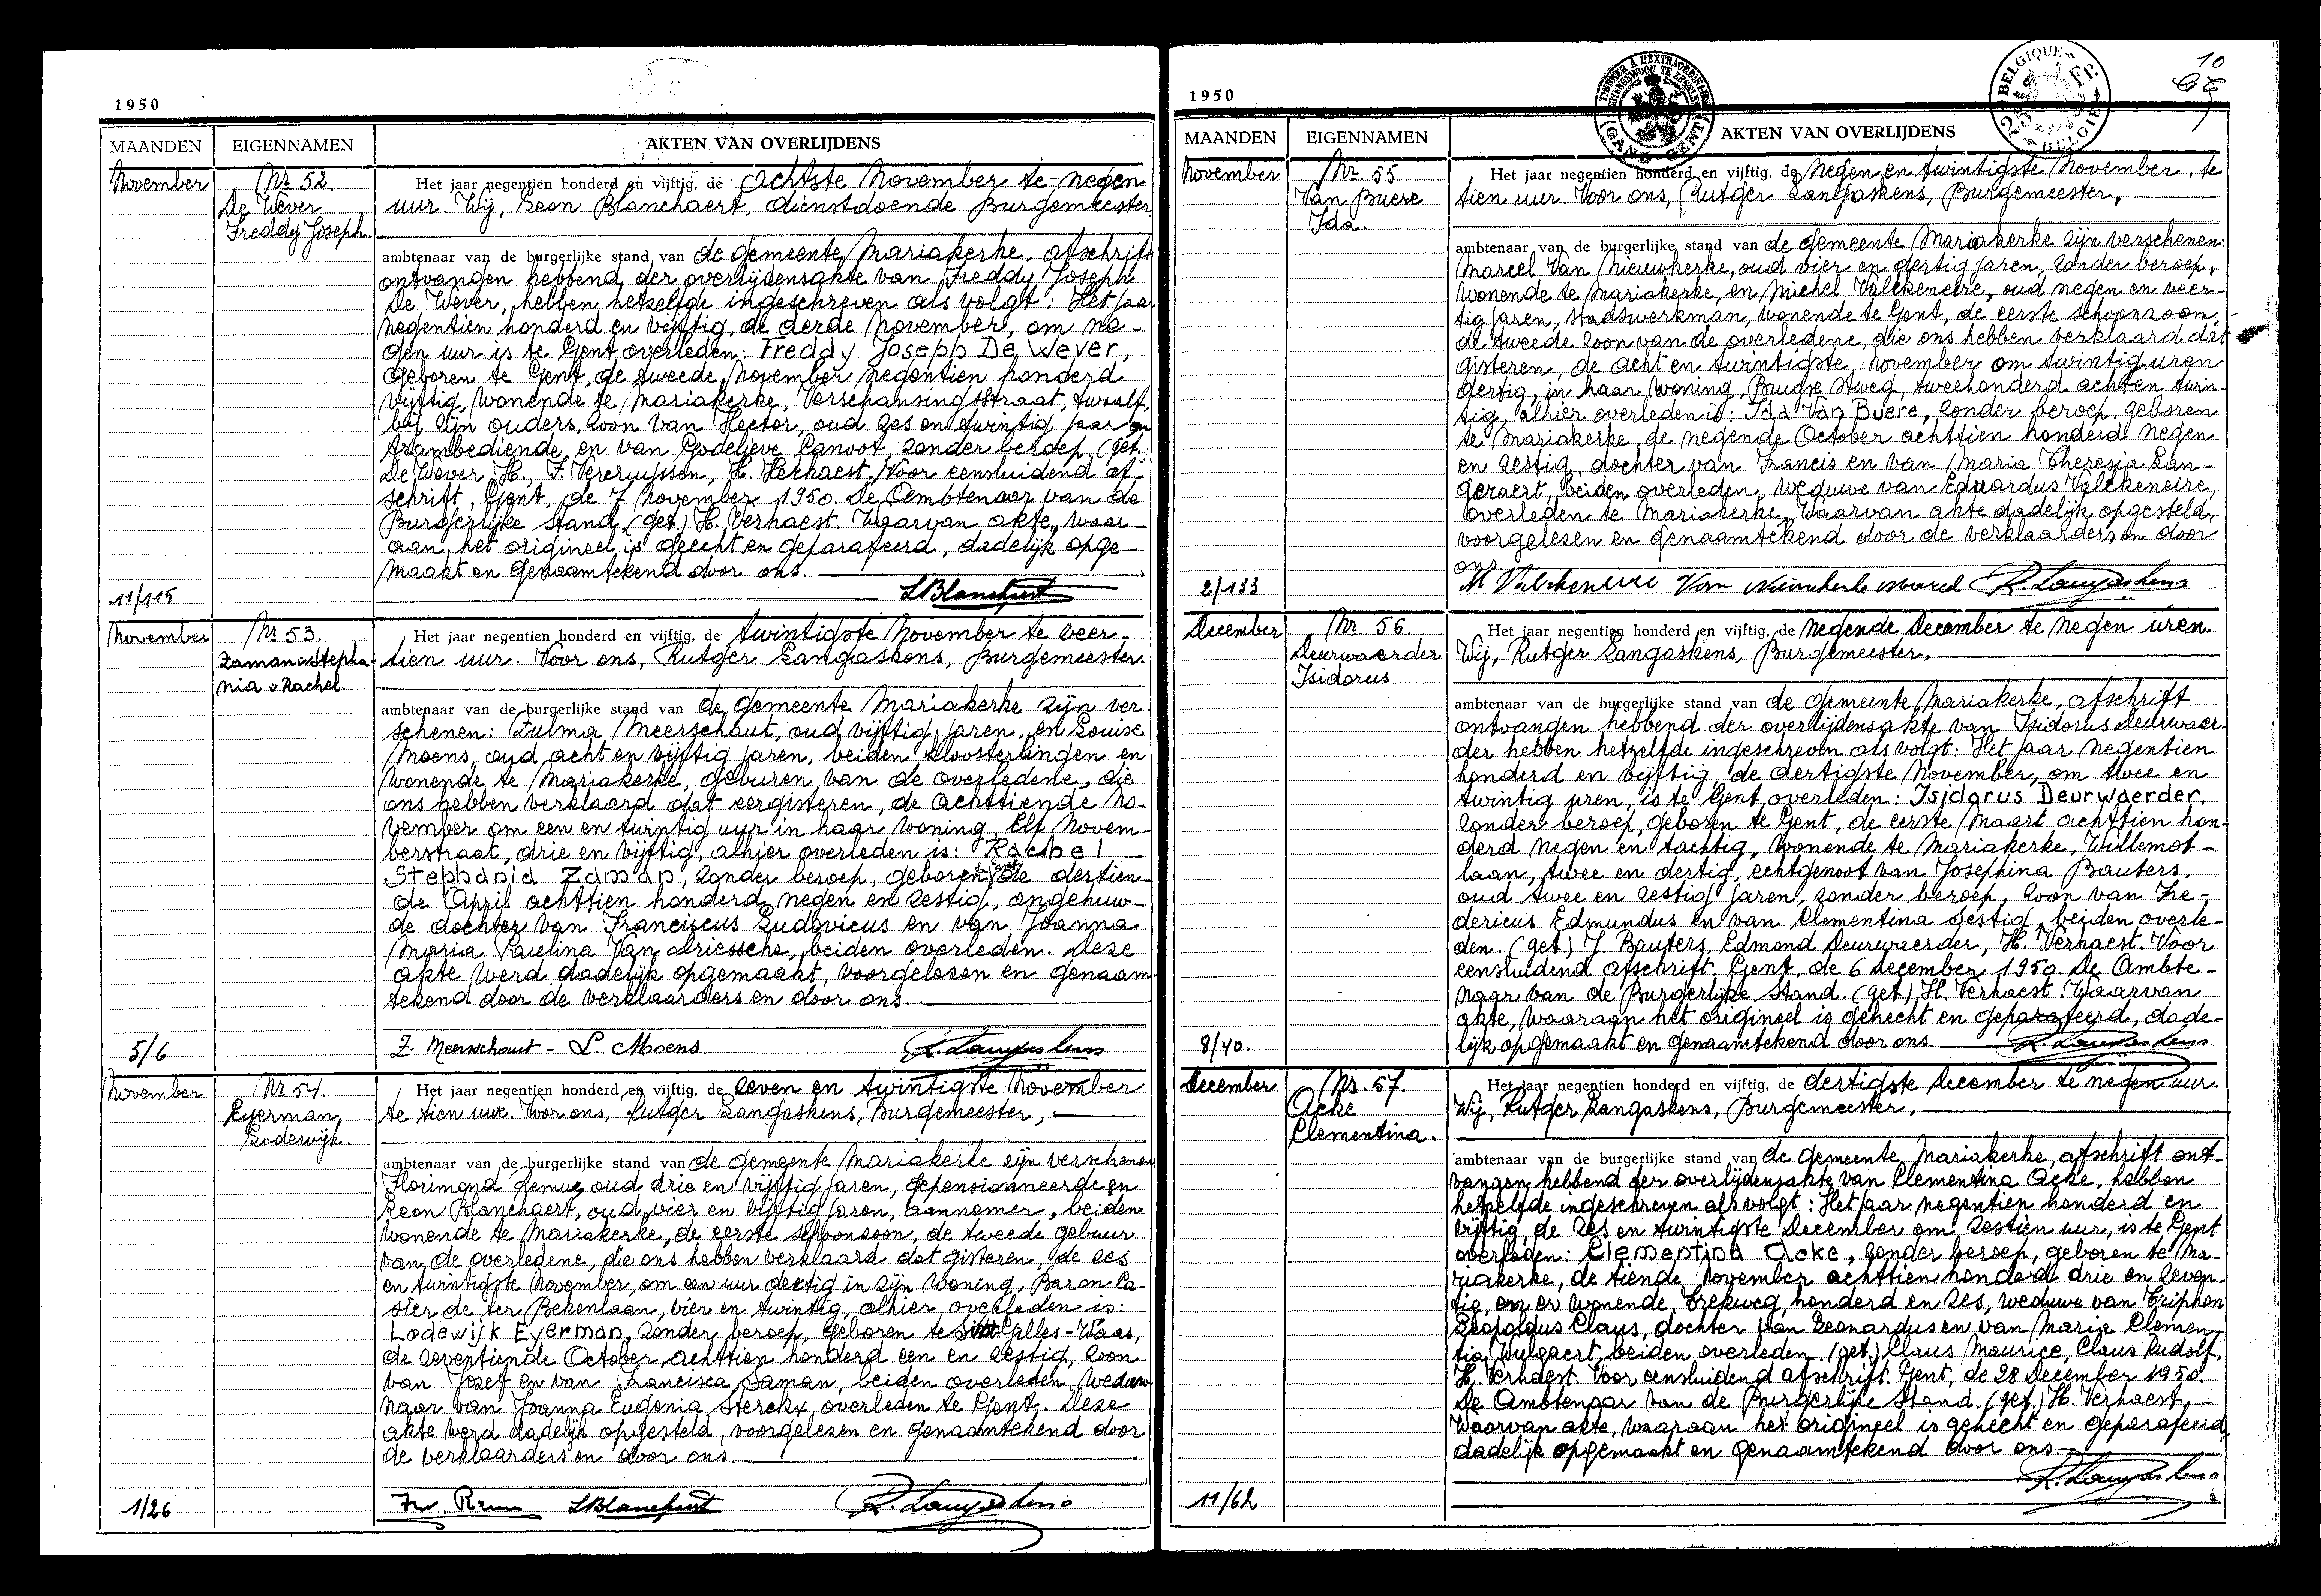 1950
MAANDEN EIGENNAMEN AKTEN VAN OVERLIJDENS
November
Nr 52.
De Wever
Freddy Joseph.
Het jaar negentien honderd en vijftig, de achtste November te negen
uur. Wij, Leon Blanchaert, dienstdoende Burgemeester,
ambtenaar van de burgerlijke stand van de gemeente Mariakerke, afschrift
ontvangen hebbend der overlijdensakte van Freddy Joseph
De Wever, hebben hetzelfde ingeschreven als volgt: Het jaar
negentien honderd en vijftig, de derde November, om ne-
gen uur is te Gent overleden: Freddy Joseph De Wever,
geboren te Gent, de tweede November negentien honderd
vijftig, wonende te Mariakerke, Verschansingsstraat, twaalf,
bij zijn ouders, zoon van Hector, oud zes en twintig jaar
trambediende, en van Godelieve Canoot, zonder beroep, (get.)
De Wever H., F. Vercruyssen, H. Verhaest. Voor eensluidend af-
schrift, Gent, de 7 November 1950. De Ambtenaar van de
Burgerlijke Stand, (get.) H. Verhaest. Waarvan akte, waar-
aan het origineel is gehecht en geparafeerd, dadelijk opge-
maakt en genaamtekend door ons.
11/115
LBlanchaert
November
Nr 53.
Zaman Stepha-
nia Rachel
Het jaar negentien honderd en vijftig, de twintigste November te veer-
tien uur. Voor ons, Rutger Langaskens, Burgemeester.
ambtenaar van de burgerlijke stand van de gemeente Mariakerke zijn ver
schenen: Zulma Meerschaut, oud vijftig jaren, en Louise
Moens, oud acht en vijftig jaren, beiden kloosterlingen en
wonende te Mariakerke, geburen van de overledene, die
ons hebben verklaard dat eergisteren, de achttiende No-
vember om een en twintig uur in haar woning, Elf Novem-
berstraat, drie en vijftig, alhier overleden is: Rachel
Stephania Zaman, zonder beroep, geboren de dertien-
de April achttien honderd negen en zestig, ongehuw-
de dochter van Franciscus Ludovicus en van Joanna
Maria Paulina Van driessche, beiden overleden. Deze
akte werd dadelijk opgemaakt, voorgelezen en genaam-
tekend door de verklaarders en door ons.
5/6
Z. Meerschaut - L. Moens. R. Langaskens
November
Nr 54.
Eyerman
Lodewijk.
Het jaar negentien honderd en vijftig, de zeven en twintigste November
te tien uur. Voor ons, Rutger Langaskens, Burgemeester,
ambtenaar van de burgerlijke stand van de gemeente Mariakerke zijn verschenen
Florimond oud drie en vijftig jaren, gepensionneerde en
Leon Blanchaert, oud vier en vijftig jaren, aannemer, beiden
wonende te Mariakerke, de eerste schoonzoon, de tweede gebuur
van de overledene, die ons hebben verklaard dat gisteren, de zes
en twintigste November, om een uur dertig in zijn woning, Baron Ca-
sier de ter Bekenlaan, vier en twintig, alhier overleden is:
Lodewijk Eyerman, zonder beroep, geboren te Sint Gilles-Waas,
de zeventiende October, achttien honderd een en zestig, zoon
van Jozef en van Francisca Saman, beiden overleden, weduw-
naar van Joanna Eugenia Sterckx, overleden te Gent. Deze
akte werd dadelijk opgesteld, voorgelezen en genaamtekend door
de verklaarders en door ons.
1/26
LBlanchaert R. Langaskens
10
TIMBRE A L'EXTRAORDINAIRE
BUITENGEWOON TE ZEGELEN
(GAND-GENT)
BELGIQUE
BELGIE
Fr.
1950
MAANDEN EIGENNAMEN AKTEN VAN OVERLIJDENS
November
Nr. 55
Van Buere
Ida.
Het jaar negentien honderd en vijftig, de negen en twintigste November, te
tien uur. Voor ons, Rutger Langaskens, Burgemeester,
ambtenaar van de burgerlijke stand van de gemeente Mariakerke zijn verschenen:
Marcel Van Nieuwkerke, oud vier en dertig jaren, zonder beroep,
wonende te Mariakerke, en Michel Valckeneire, oud negen en veer-
tig jaren, stadswerkman, wonende te Gent, de eerste schoonzoon,
de tweede zoon van de overledene, die ons hebben verklaard dat
gisteren, de acht en twintigste November om twintig uren
dertig, in haar woning, Brugse steweg, tweehonderd acht en twin-
tig, alhier overleden is: Ida Van Buere, zonder beroep, geboren
te Mariakerke, de negende October achttien honderd negen
en zestig, dochter van Francis en van Maria Theresia Lan-
geraert, beiden overleden, weduwe van Eduardus Valckeneire,
overleden te Mariakerke. Waarvan akte dadelijk opgesteld,
voorgelezen en genaamtekend door de verklaarders en door
ons.
2/133
M Valckeneire Van Nieuwkerke Marcel R. Langaskens
December
Nr. 56.
Deurwaerder
Isidorus
Het jaar negentien honderd en vijftig, de negende December te negen uren.
Wij, Rutger Langaskens, Burgemeester,
ambtenaar van de burgerlijke stand van de gemeente Mariakerke, afschrift
ontvangen hebbend der overlijdensakte van Isidorus Deurwaer-
der hebben hetzelfde ingeschreven als volgt: Het jaar negentien
honderd en vijftig, de dertigste November, om twee en
twintig uren, is te Gent overleden: Isidorus Deurwaerder,
zonder beroep, geboren te Gent, de eerste Maart achttien hon-
derd negen en tachtig, wonende te Mariakerke, Willemot-
laan, twee en dertig, echtgenoot van Josephina Bauters,
oud twee en zestig jaren, zonder beroep, zoon van Fre-
dericus Edmundus en van Clementina Sestig, beiden overle-
den. (get.) J. Bauters, Edmond Deurwaerder, H. Verhaest. Voor
eensluidend afschrift, Gent, de 6 December 1950. De Ambte-
naar van de Burgerlijke Stand. (get.) H. Verhaest. Waarvan
akte, waaraan het origineel is gehecht en geparafeerd, dade-
lijk opgemaakt en genaamtekend door ons.
8/40.
R. Langaskens
December
Nr. 57.
Acke
Clementina.
Het jaar negentien honderd en vijftig, de dertigste December te negen uur.
Wij, Rutger Langaskens, Burgemeester,
ambtenaar van de burgerlijke stand van de gemeente Mariakerke, afschrift ont-
vangen hebbend der overlijdensakte van Clementina Acke, hebben
hetzelfde ingeschreven als volgt: Het jaar negentien honderd en
vijftig, de zes en twintigste December om zestien uur, is te Gent
overleden: Clementina Acke, zonder beroep, geboren te Ma-
riakerke, de tiende November achttien honderd drie en zeven-
tig, en er wonende, Trekweg, honderd en zes, weduwe van Triphon
Leopoldus Claus, dochter van Leonardus en van Maria Clemen-
tia Wulgaert, beiden overleden. (get.) Claus Maurice, Claus Rudolf,
H. Verhaest. Voor eensluidend afschrift. Gent, de 28 December 1950.
De Ambtenaar van de Burgerlijke Stand (get.) H. Verhaest,
Waarvan akte, waaraan het origineel is gehecht en geparafeerd,
dadelijk opgemaakt en genaamtekend door ons.
11/62
R. Langaskens